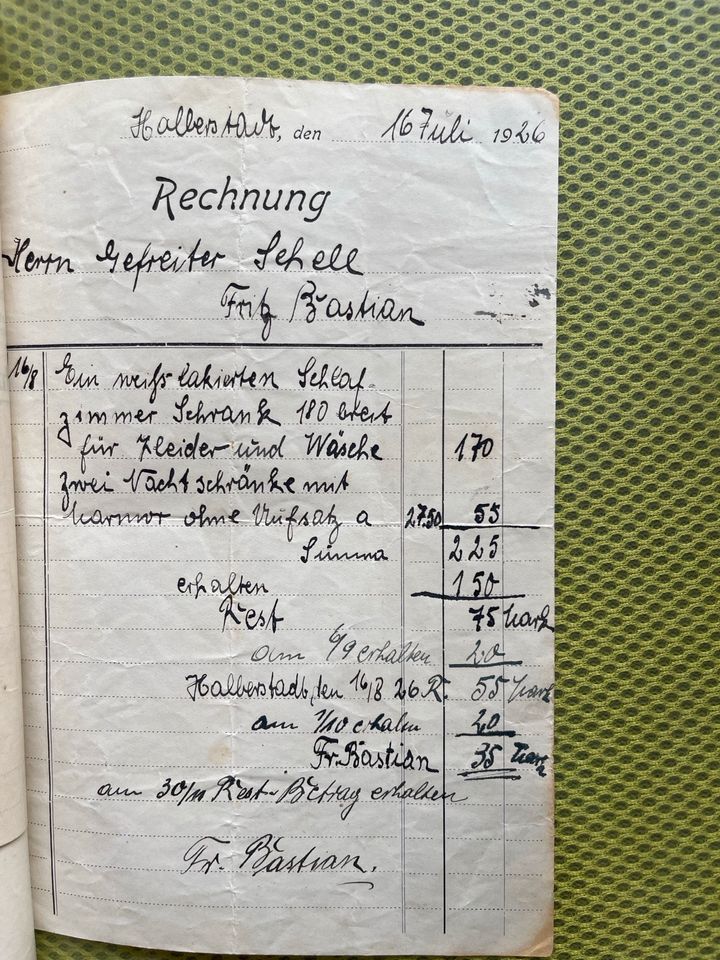 Halberstadt, den 16 Juli 1926
Rechnung
Herrn Gefreiter Schell
Fritz Bastian
16/8 Ein weifs lakierten Schlaf-
zimmer Schrank 180 breit
für Kleider und Wäsche 170
zwei Nachtschränke mit
Marmor ohne Aufsatz a 27.50 55
Summa 225
erhalten 150
Rest 75 Mark
am 6/9 erhalten 20
Halberstadt, den 16/8 26 R. 55 Mark
am 7/10 erhalten 20
Fr. Bastian 35 Mark
am 30/11 Rest-Betrag erhalten
Fr. Bastian.